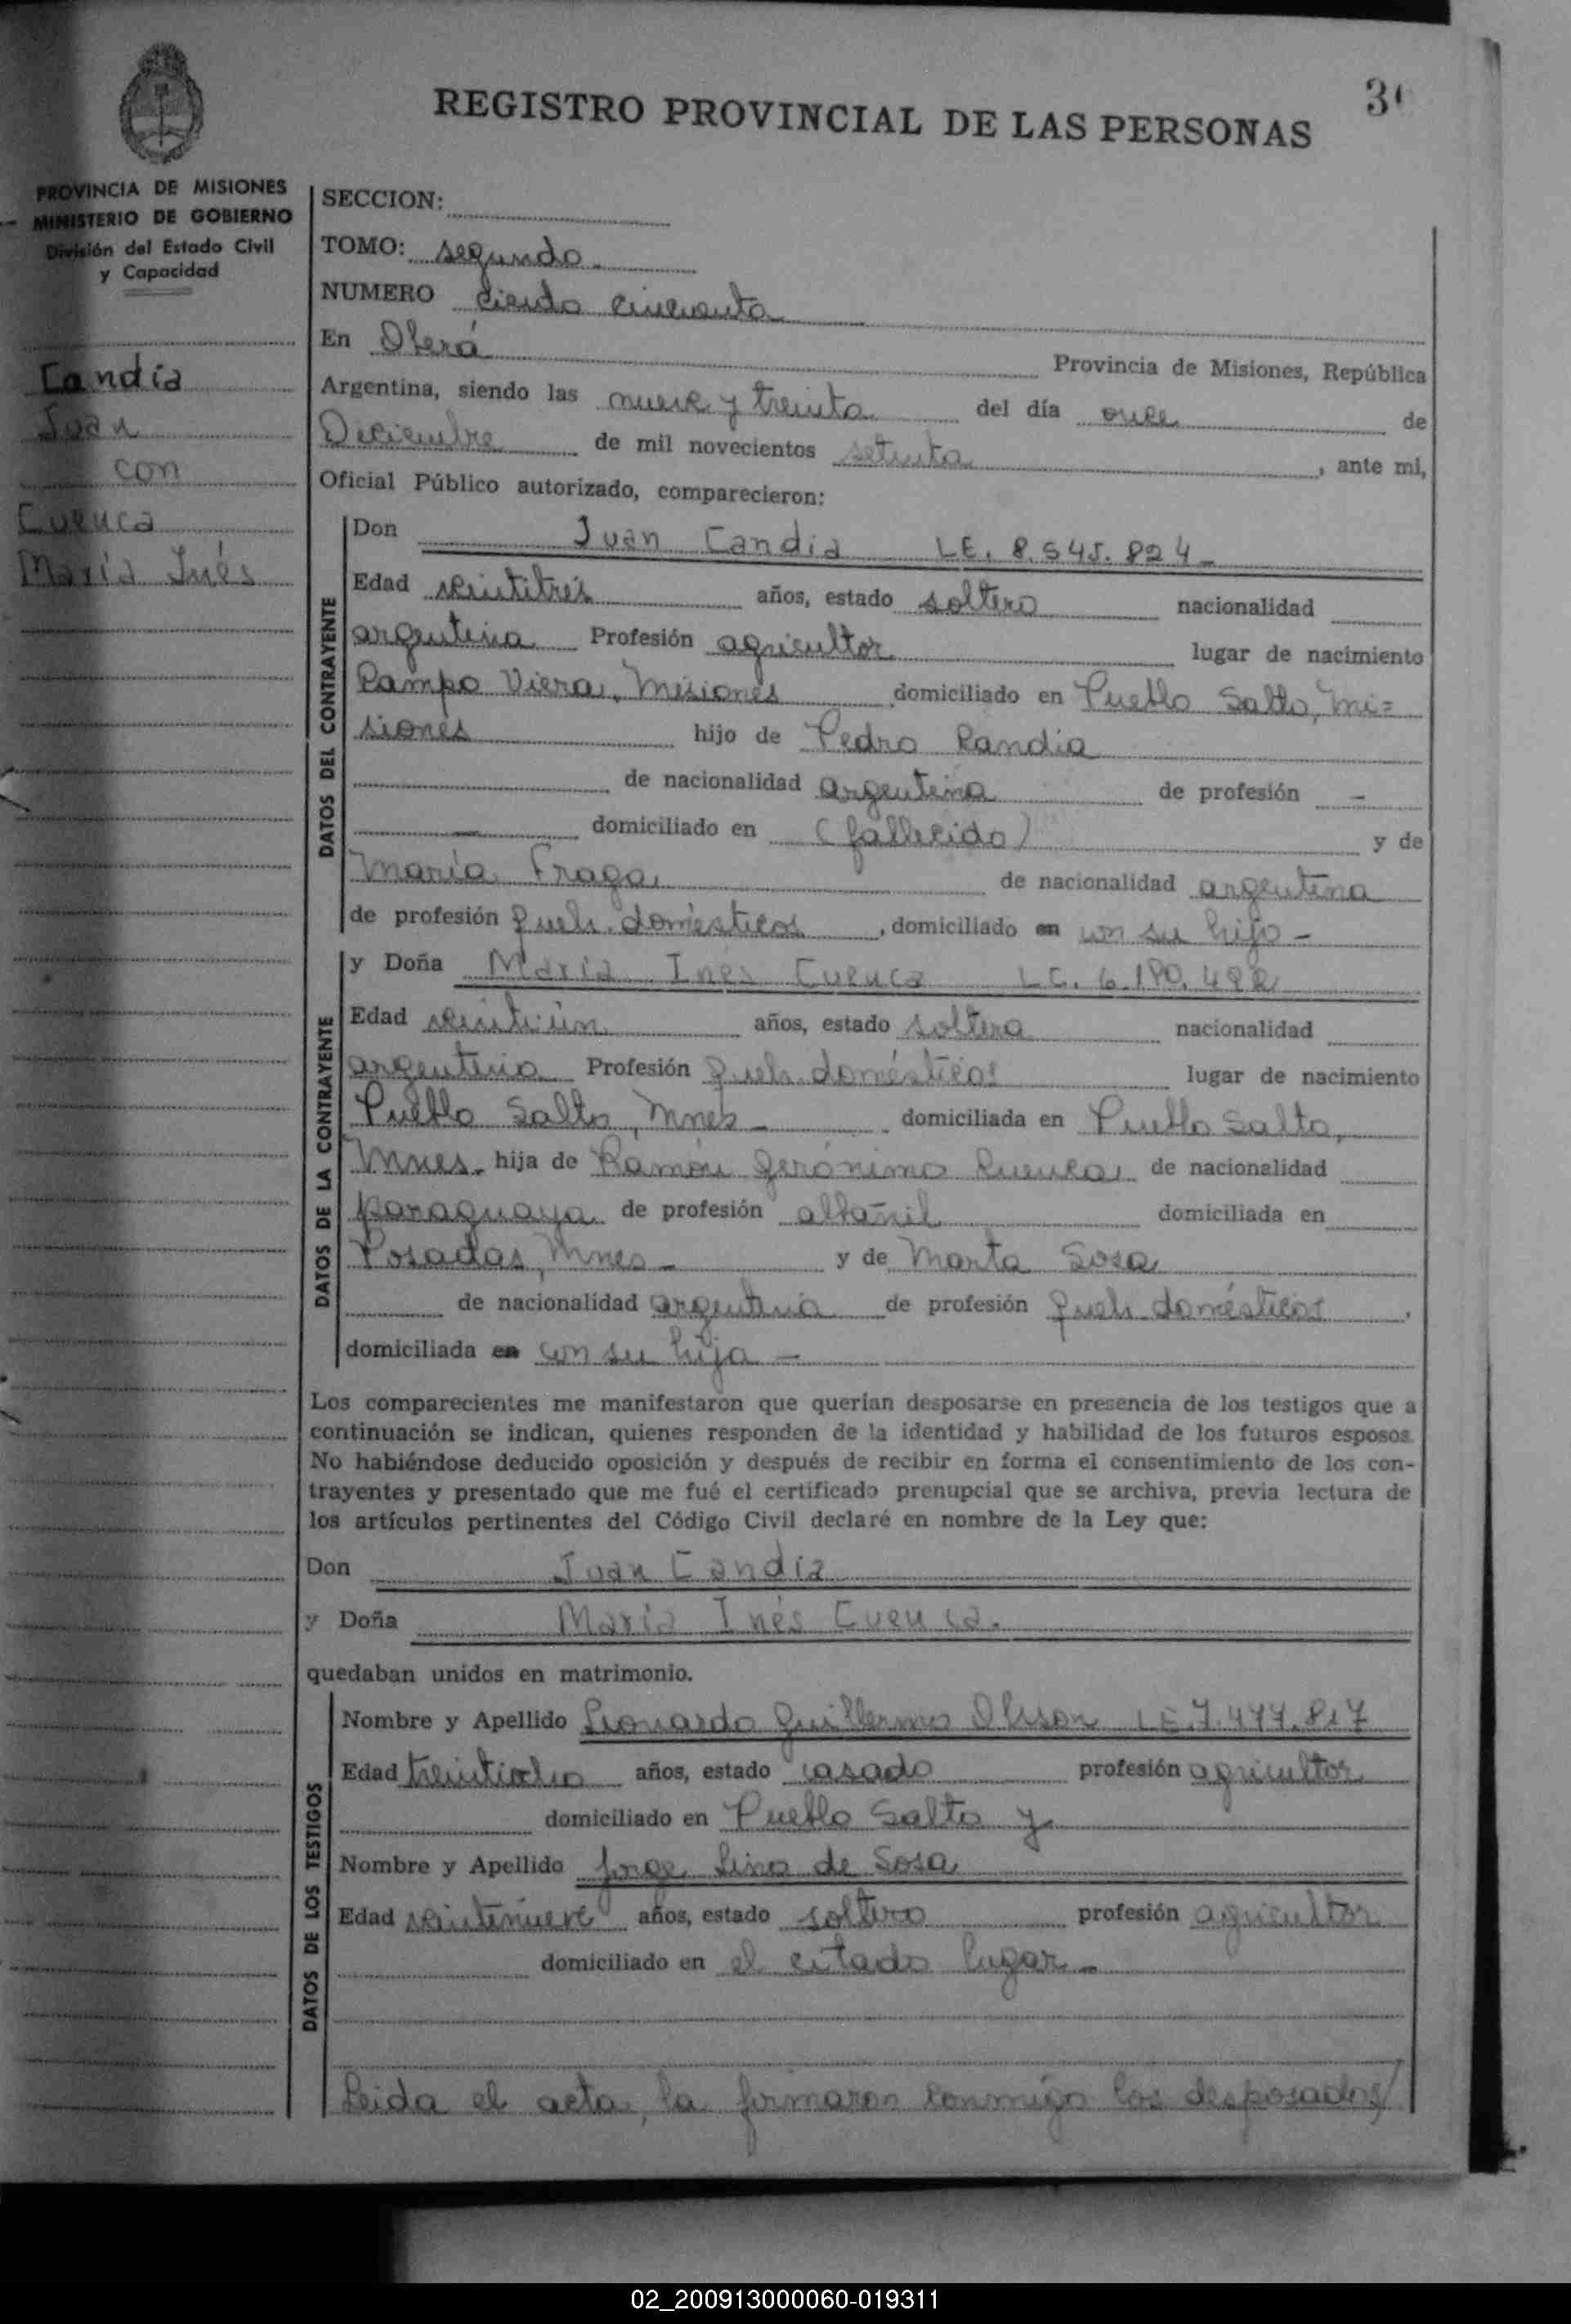 REGISTRO PROVINCIAL DE LAS PERSONAS
PROVINCIA DE MISIONES
MINISTERIO DE GOBIERNO
División del Estado Civil
y Capacidad
Candia
Juan
con
Cuenca
María Inés
SECCION:
TOMO: segundo
NUMERO ciento cincuenta
En Oberá Provincia de Misiones, República
Argentina, siendo las nueve y treinta del día once de
Diciembre de mil novecientos setenta, ante mi,
Oficial Público autorizado, comparecieron:
DATOS DEL CONTRAYENTE
Don Juan Candia LE. 8.545.824
Edad veintitrés años, estado soltero nacionalidad
argentina Profesión agricultor lugar de nacimiento
Campo Viera, Misiones domiciliado en Pueblo Salto, Mi=
siones hijo de Pedro Candia
de nacionalidad argentina de profesión -
- domiciliado en (fallecido) y de
María Fraga de nacionalidad argentina
de profesión queh. domésticos, domiciliado en con su hijo -
DATOS DE LA CONTRAYENTE
y Doña María Inés Cuenca LC. 6.190.492
Edad veintiún años, estado soltera nacionalidad
argentina Profesión queh. domésticos lugar de nacimiento
Pueblo Salto, Mnes - domiciliada en Pueblo Salto,
Mnes. hija de Ramón Gerónimo Cuenca, de nacionalidad
paraguaya de profesión albañil domiciliada en
Posadas, Mnes - y de Marta Sosa
de nacionalidad argentina de profesión queh. domésticos,
domiciliada en con su hija -
Los comparecientes me manifestaron que querían desposarse en presencia de los testigos que a
continuación se indican, quienes responden de la identidad y habilidad de los futuros esposos.
No habiéndose deducido oposición y después de recibir en forma el consentimiento de los con-
trayentes y presentado que me fué el certificado prenupcial que se archiva, previa lectura de
los artículos pertinentes del Código Civil declaré en nombre de la Ley que:
Don Juan Candia
y Doña María Inés Cuenca.
quedaban unidos en matrimonio.
DATOS DE LOS TESTIGOS
Nombre y Apellido Leonardo Guillermo Olsson LE.7.477.817
Edad treintiocho años, estado casado profesión agricultor
domiciliado en Pueblo Salto y
Nombre y Apellido Jorge Lino de Sosa
Edad veintenueve años, estado soltero profesión agricultor
domiciliado en el citado lugar -
Leida el acta, la firmaron conmigo los desposados/
02_200913000060-019311